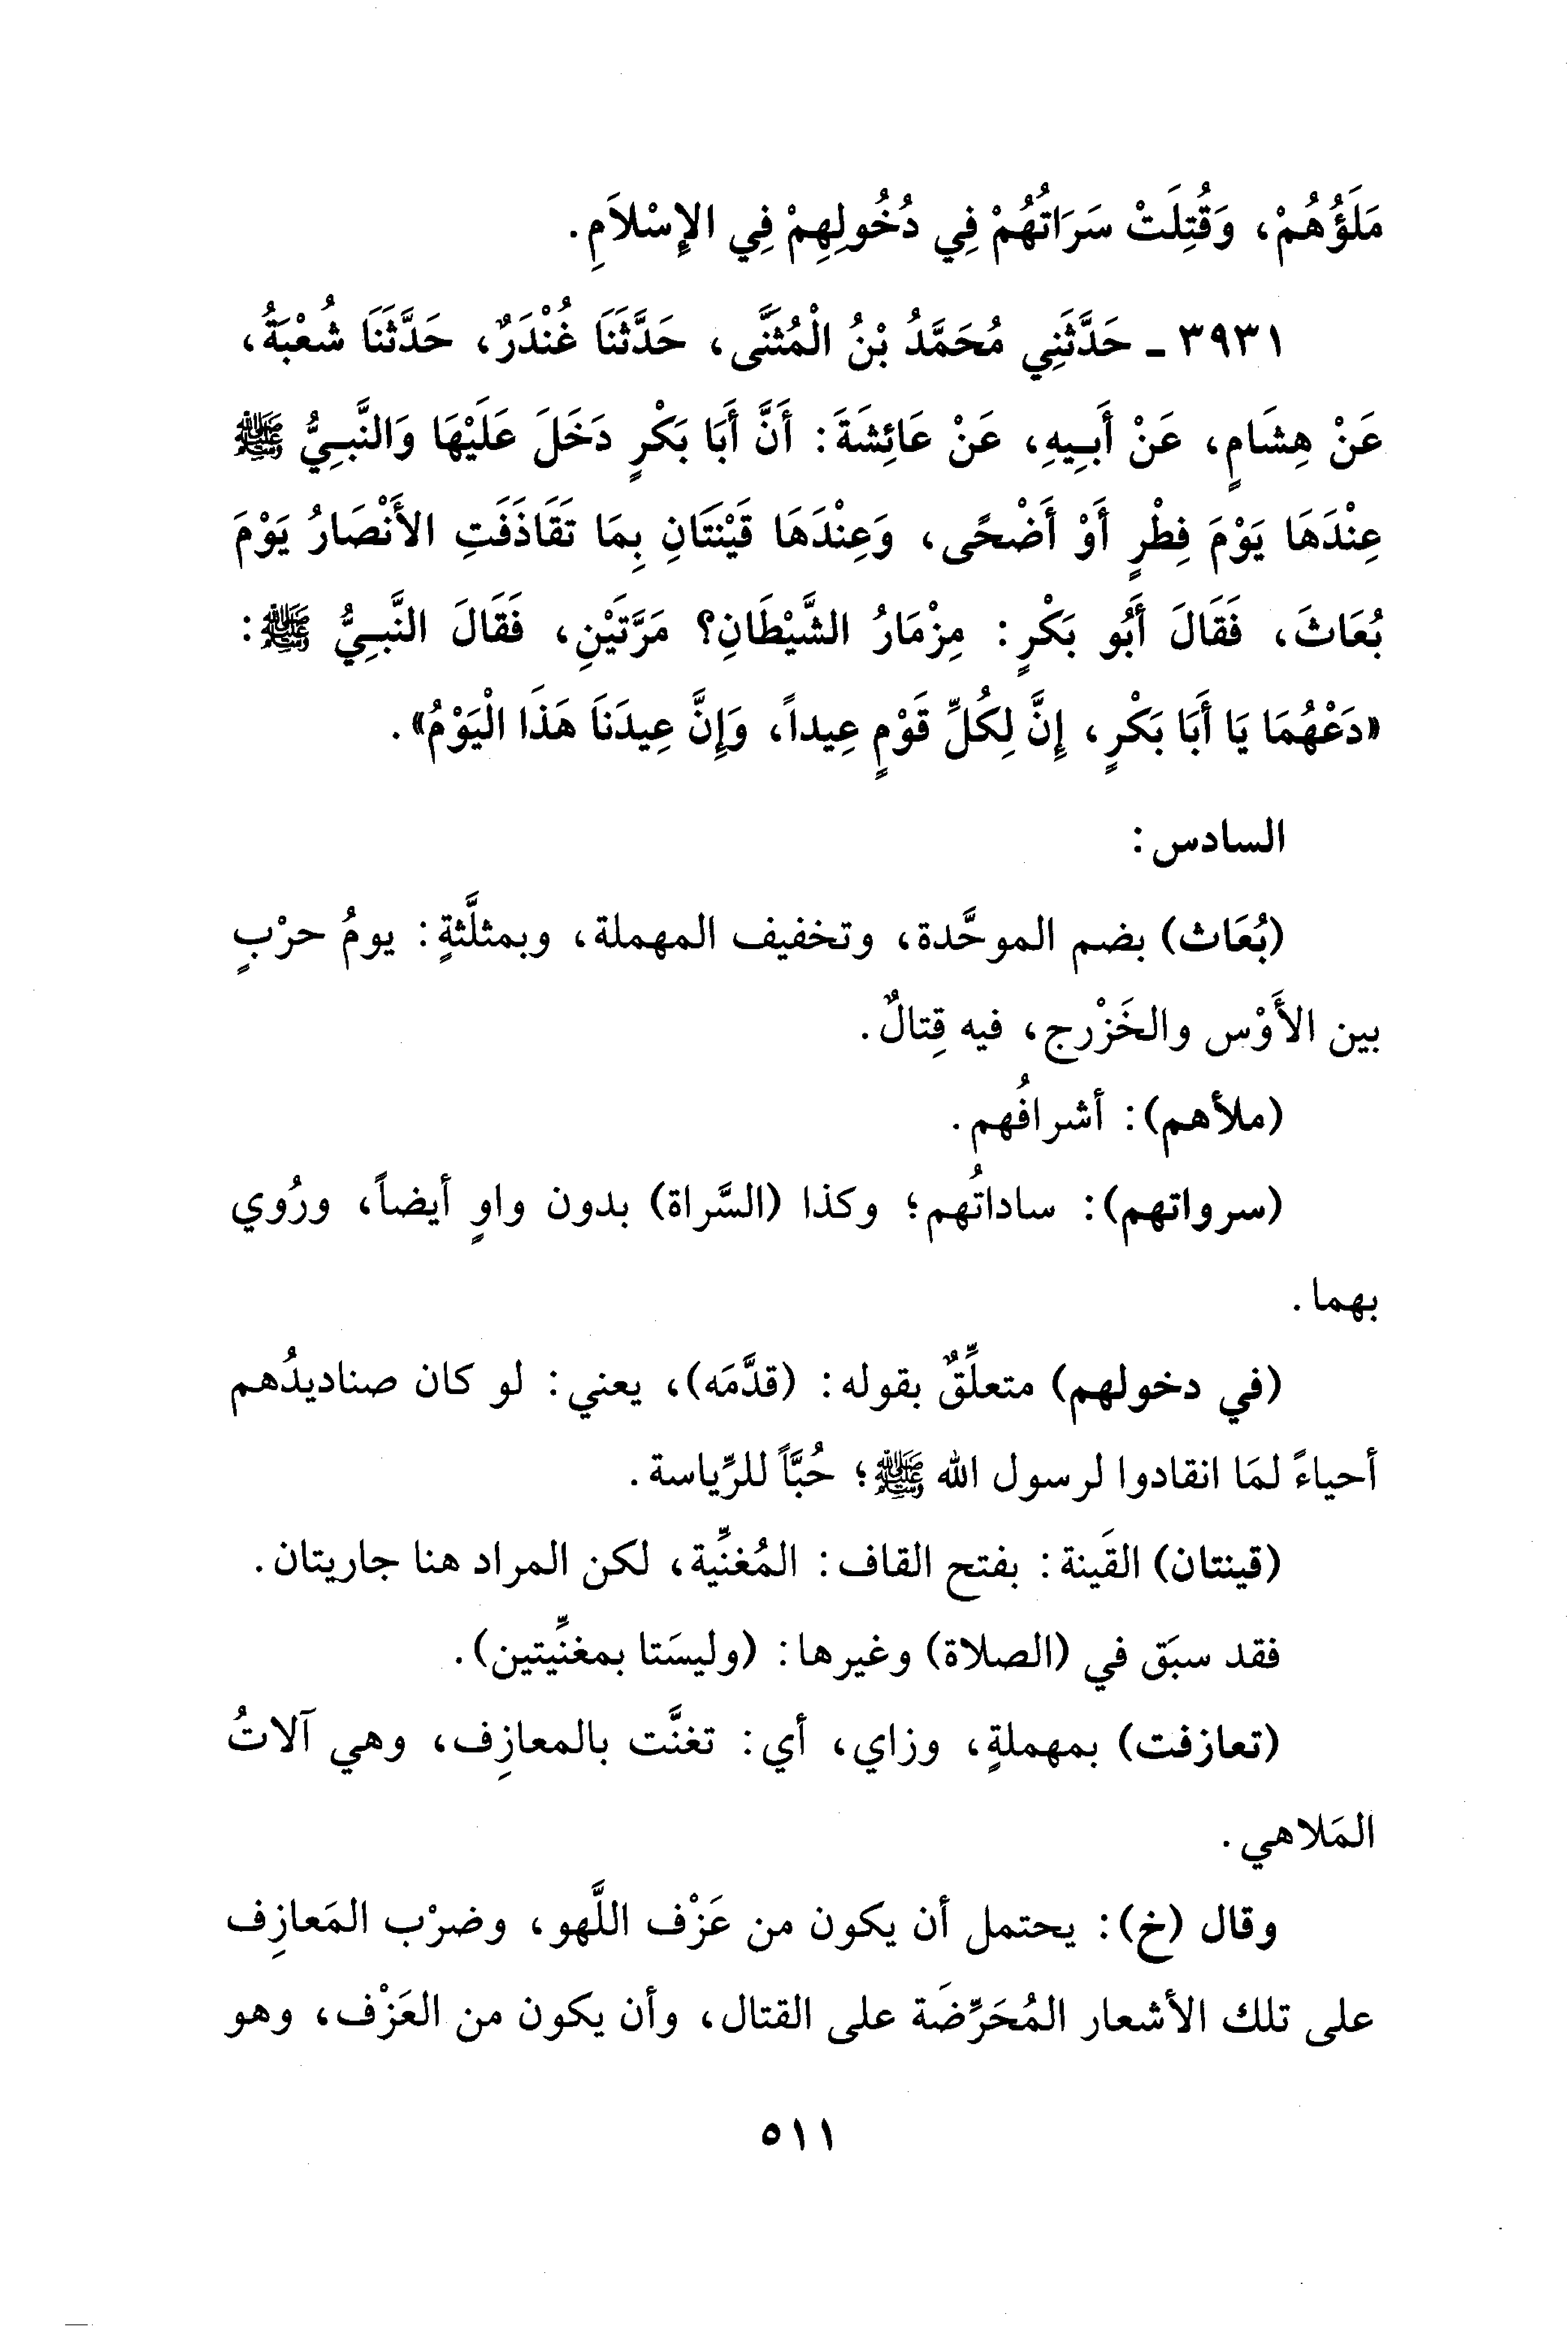 مَلَؤُهُمْ، وَقُتِلَتْ سَرَاتُهُمْ فِي دُخُولِهِمْ فِي الإِسْلاَمِ.
٣٩٣١ - حَدَّثَنِي مُحَمَّدُ بْنُ الْمُثَنَّى، حَدَّثَنَا غُنْدَرٌ، حَدَّثَنَا شُعْبَةُ،
عَنْ هِشَامٍ، عَنْ أَبِيهِ، عَنْ عَائِشَةَ: أَنَّ أَبَا بَكْرٍ دَخَلَ عَلَيْهَا وَالنَّبِيُّ ﷺ
عِنْدَهَا يَوْمَ فِطْرٍ أَوْ أَضْحًى، وَعِنْدَهَا قَيْنَتَانِ بِمَا تَقَاذَفَتِ الأَنْصَارُ يَوْمَ
بُعَاثَ، فَقَالَ أَبُو بَكْرٍ: مِزْمَارُ الشَّيْطَانِ؟ مَرَّتَيْنِ، فَقَالَ النَّبِيُّ ﷺ:
«دَعْهُمَا يَا أَبَا بَكْرٍ، إِنَّ لِكُلِّ قَوْمٍ عِيداً، وَإِنَّ عِيدَنَا هَذَا الْيَوْمُ».
السادس:
(بُعَاث) بضم الموحَّدة، وتخفيف المهملة، وبمثلَّثةٍ: يومُ حرْبٍ
بين الأَوْس والخَزْرج، فيه قِتالٌ.
(ملأهم): أشرافُهم.
(سرواتهم): ساداتُهم؛ وكذا (السَّراة) بدون واوٍ أيضاً، ورُوي
بهما.
(في دخولهم) متعلِّقٌ بقوله: (قدَّمَه)، يعني: لو كان صناديدُهم
أحياءً لمَا انقادوا لرسول الله ﷺ؛ حُبَّاً للرِّياسة.
(قينتان) القَينة: بفتح القاف: المُغنِّية، لكن المراد هنا جاريتان.
فقد سبَق في (الصلاة) وغيرها: (وليسَتا بمغنِّيتين).
(تعازفت) بمهملةٍ، وزاي، أي: تغنَّت بالمعازِف، وهي آلاتُ
المَلاهي.
وقال (خ): يحتمل أن يكون من عَزْف اللَّهو، وضرْب المَعازِف
على تلك الأشعار المُحَرِّضَة على القتال، وأن يكون من العَزْف، وهو
٥١١